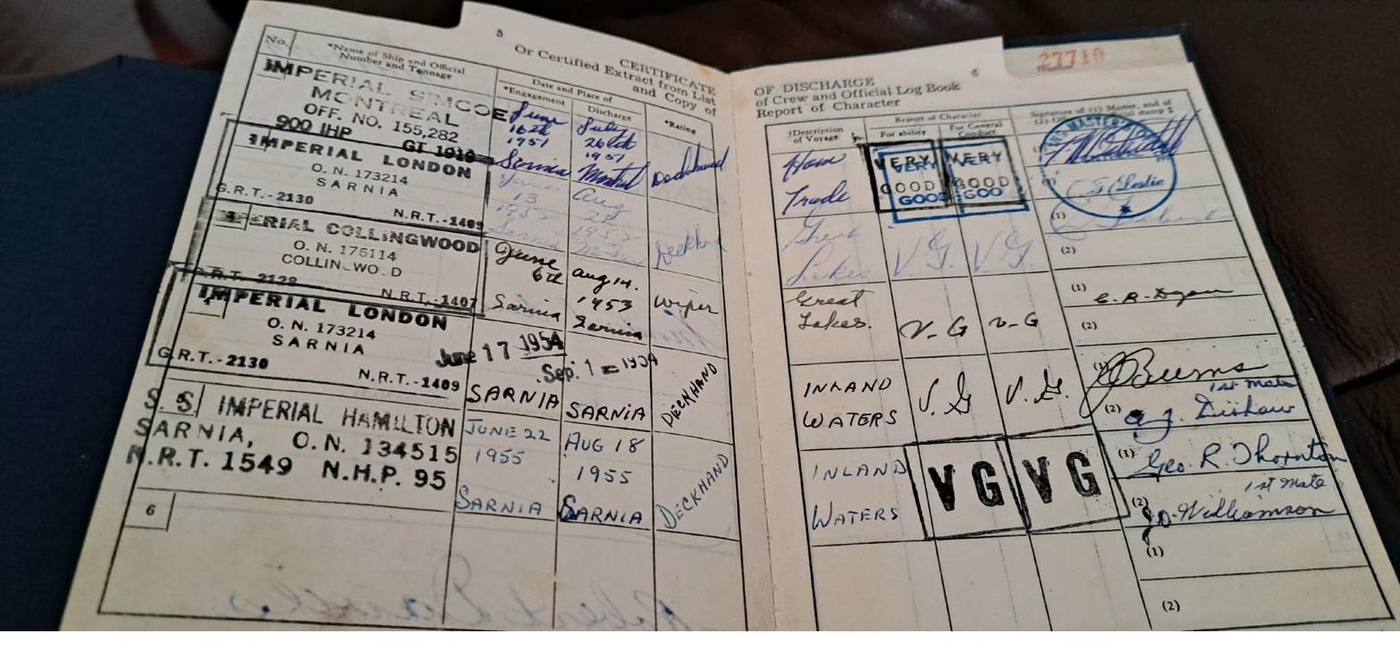 5
Or Certified Extract from List
and Copy of
CERTIFICATE
No.
*Name of Ship and Official
Number and Tonnage
Date and Place of
*Engagement
Discharge
*Rating
IMPERIAL SIMCOE
MONTREAL
OFF. NO. 155,282
900 IHP
GT 1919
June
16th
1951
Sarnia
July
26th
1951
Montreal
Deckhand
IMPERIAL LONDON
O. N. 173214
SARNIA
G.R.T.-2130
N.R.T.-1409
13
Aug
Sarnia
Deckh
ERIAL COLLINGWOOD
O. N. 176114
COLLIN WO D
N.R.T.-1407
June
6th
Sarnia
Aug 14.
1953
Sarnia
Wiper
IMPERIAL LONDON
O. N. 173214
SARNIA
G.R.T.-2130
N.R.T.-1409
June 17 1954
Sep. 1 - 1954
SARNIA
SARNIA
DECKHAND
S. S. IMPERIAL HAMILTON
SARNIA, O.N. 134515
N.R.T. 1549 N.H.P. 95
JUNE 22
1955
SARNIA
AUG 18
1955
SARNIA
DECKHAND
6
6
27710
OF DISCHARGE
of Crew and Official Log Book
Report of Character
†Description
of Voyage
Report of Character
For ability
For General
Conduct
Home
Trade
VERY
GOOD
VERY
GOOD
VERY
GOOD
VERY
GOOD
Great
Lakes
V. G.
V. G.
(2)
Great
Lakes.
V-G
V-G
(1)
(2)
INLAND
WATERS
V. G
V. G.
(1) Burns
1st Mate
(2)
INLAND
WATERS
VG
VG
(1) Geo. R. Thornton
1st Mate
(2) J.D. Williamson
(1)
(2)